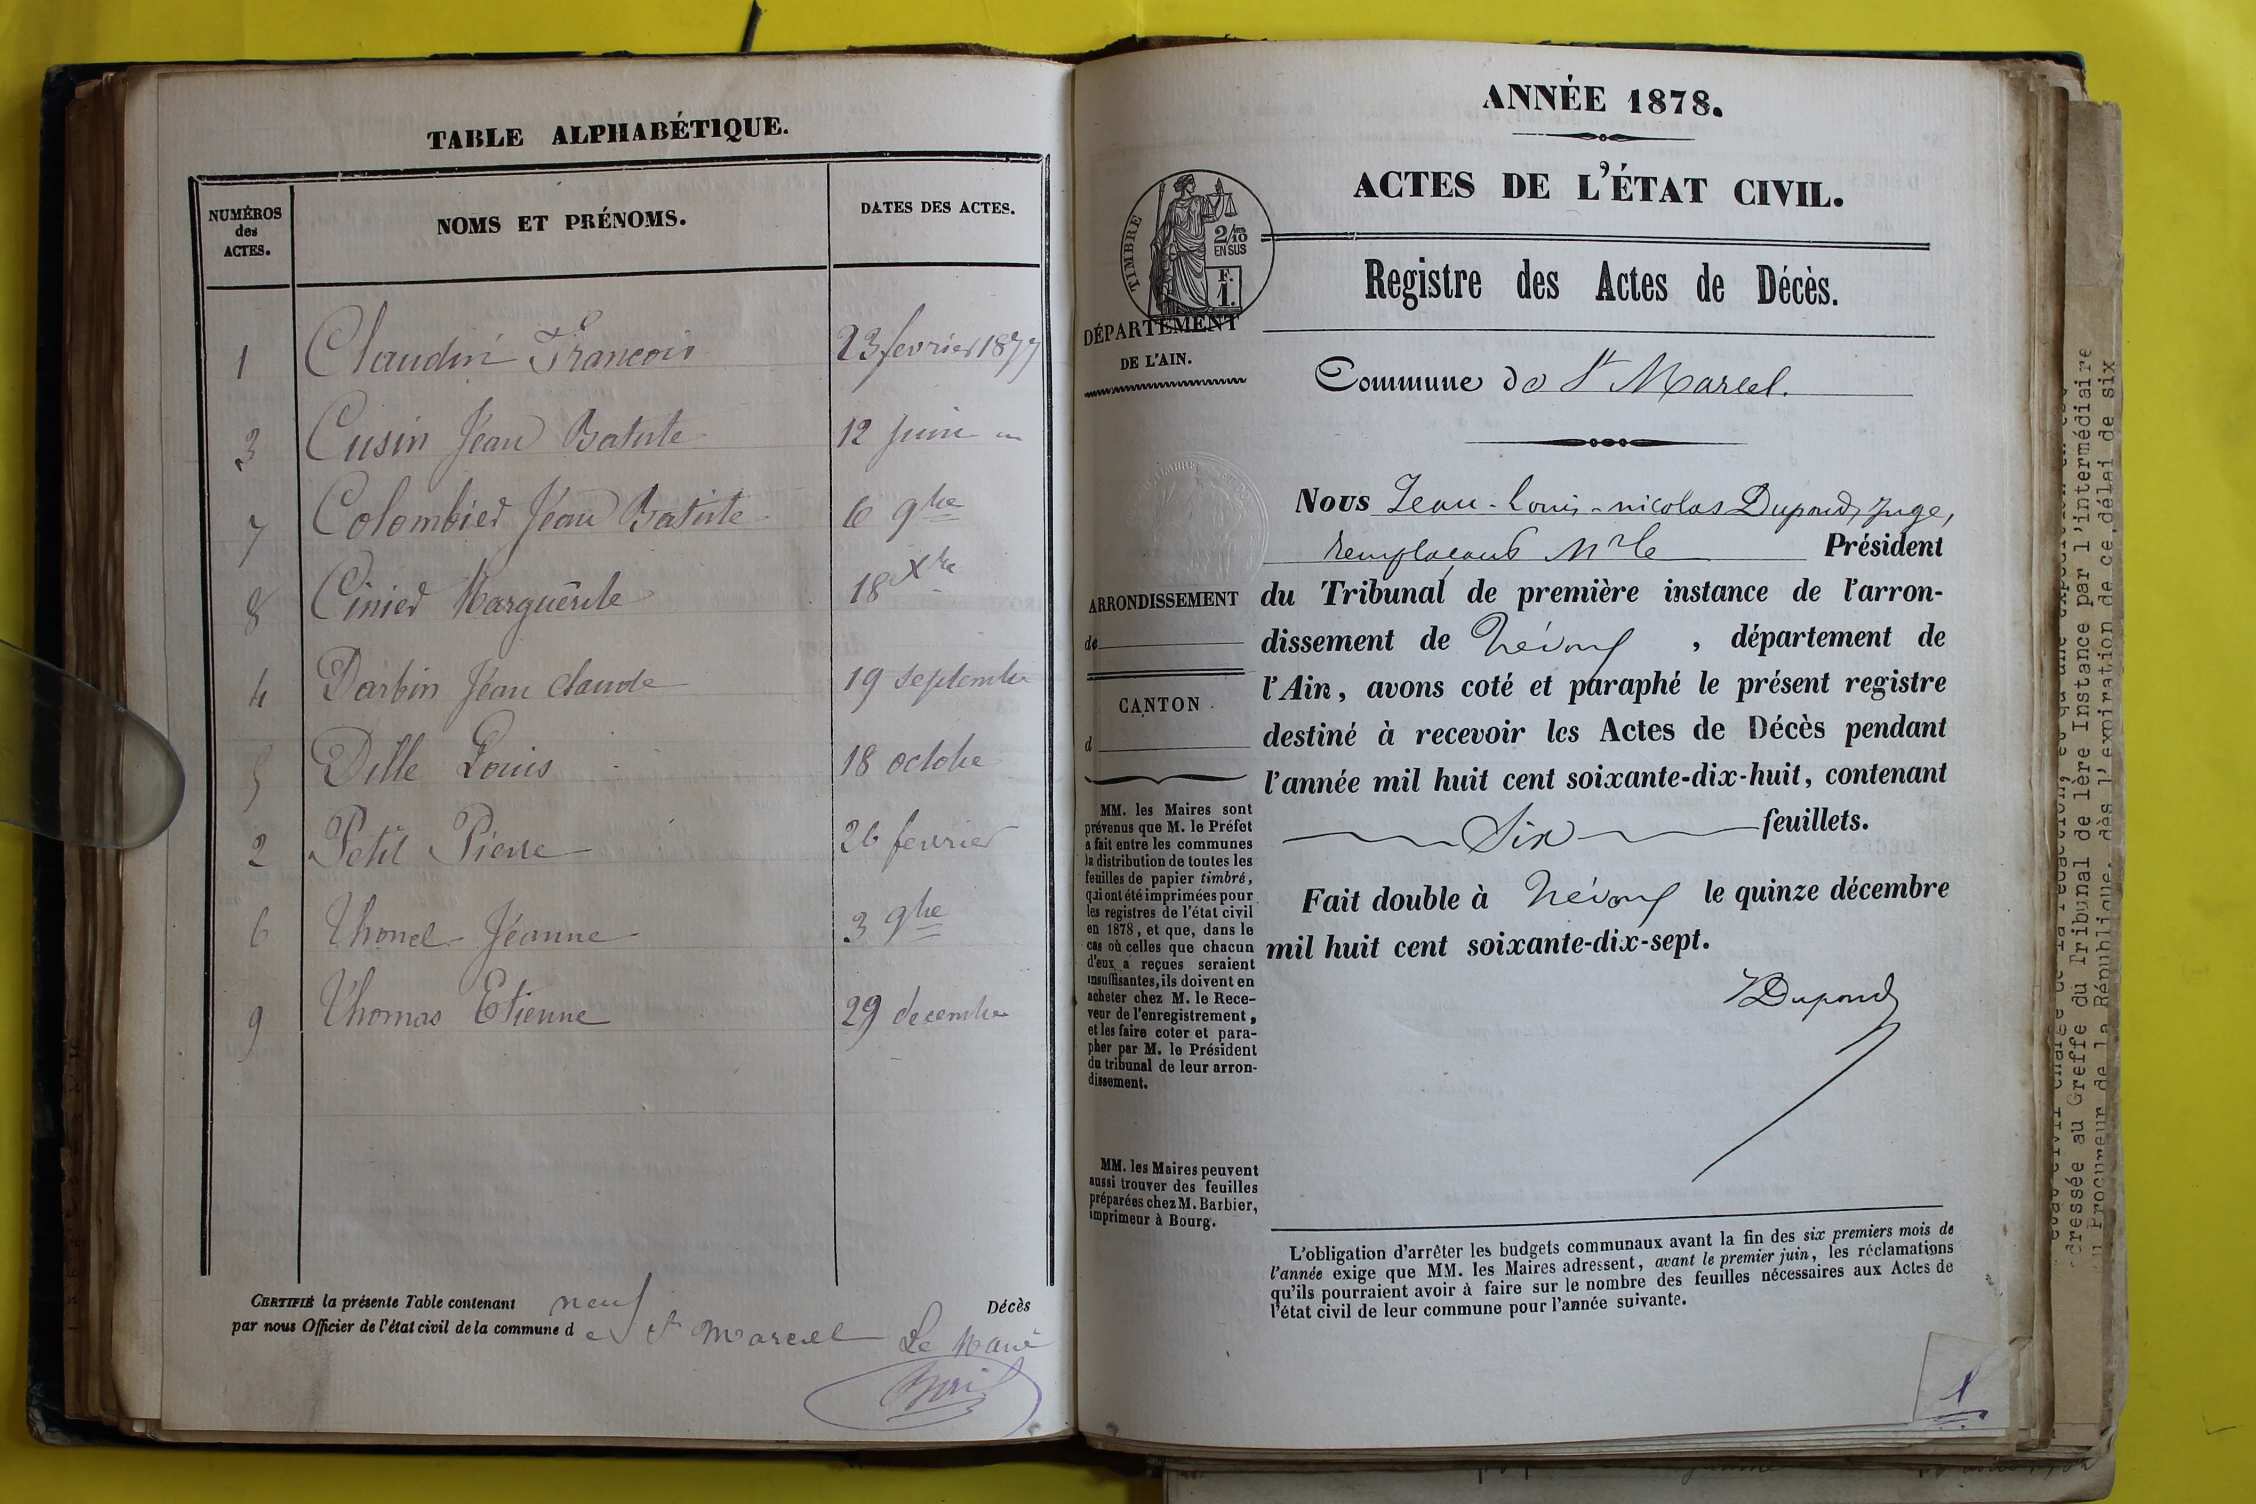 TABLE ALPHABÉTIQUE.
NUMÉROS des ACTES. NOMS ET PRÉNOMS. DATES DES ACTES.
1 Claudin François 23 fevrier 1877
3 Cusin Jean Batiste 12 Juin
7 Colombier Jean Batiste 6 9bre
8 Cinier Marguerite 18 Xbre
4 Darbin Jean claude 19 septembre
5 Dille Louis 18 octobre
2 Petit Pierre 26 fevrier
6 Thonel Jeanne 3 9bre
9 Thomas Etienne 29 decembre
CERTIFIÉ la présente Table contenant neuf Décès
par nous Officier de l'état civil de la commune de St Marcel Le Maire
ANNÉE 1878.
ACTES DE L'ÉTAT CIVIL.
TIMBRE
2/10
EN SUS
F.
1.
Registre des Actes de Décès.
DÉPARTEMENT
DE L'AIN.
Commune de St Marcel.
Nous Jean-Louis-nicolas Dupond, Juge,
remplaçant Mr le Président
du Tribunal de première instance de l'arron-
dissement de Trévoux, département de
l'Ain, avons coté et paraphé le présent registre
destiné à recevoir les Actes de Décès pendant
l'année mil huit cent soixante-dix-huit, contenant
Six feuillets.
Fait double à Trévoux le quinze décembre
mil huit cent soixante-dix-sept.
Dupond
ARRONDISSEMENT
de
CANTON
d
MM. les Maires sont
prévenus que M. le Préfet
a fait entre les communes
la distribution de toutes les
feuilles de papier timbré,
qui ont été imprimées pour
les registres de l'état civil
en 1878, et que, dans le
cas où celles que chacun
d'eux a reçues seraient
insuffisantes, ils doivent en
acheter chez M. le Rece-
veur de l'enregistrement,
et les faire coter et para-
pher par M. le Président
du tribunal de leur arron-
dissement.
MM. les Maires peuvent
aussi trouver des feuilles
préparées chez M. Barbier,
imprimeur à Bourg.
L'obligation d'arrêter les budgets communaux avant la fin des six premiers mois de
l'année exige que MM. les Maires adressent, avant le premier juin, les réclamations
qu'ils pourraient avoir à faire sur le nombre des feuilles nécessaires aux Actes de
l'état civil de leur commune pour l'année suivante.
1
dressée au Greffe du Tribunal de 1ère Instance par l'intermédiaire
Procureur de la République, dès l'expiration de ce délai de six